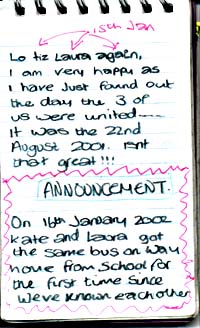 15th Jan
Lo tiz Laura again,
I am very happy as
I have just found out
the day the 3 of
us were united----
It was the 22nd
August 2001. isnt
that great!!!
ANNOUNCEMENT.
On 16th January 2002
Kate and Laura got
the same bus on way
home from School for
the first time since
We've known eachother